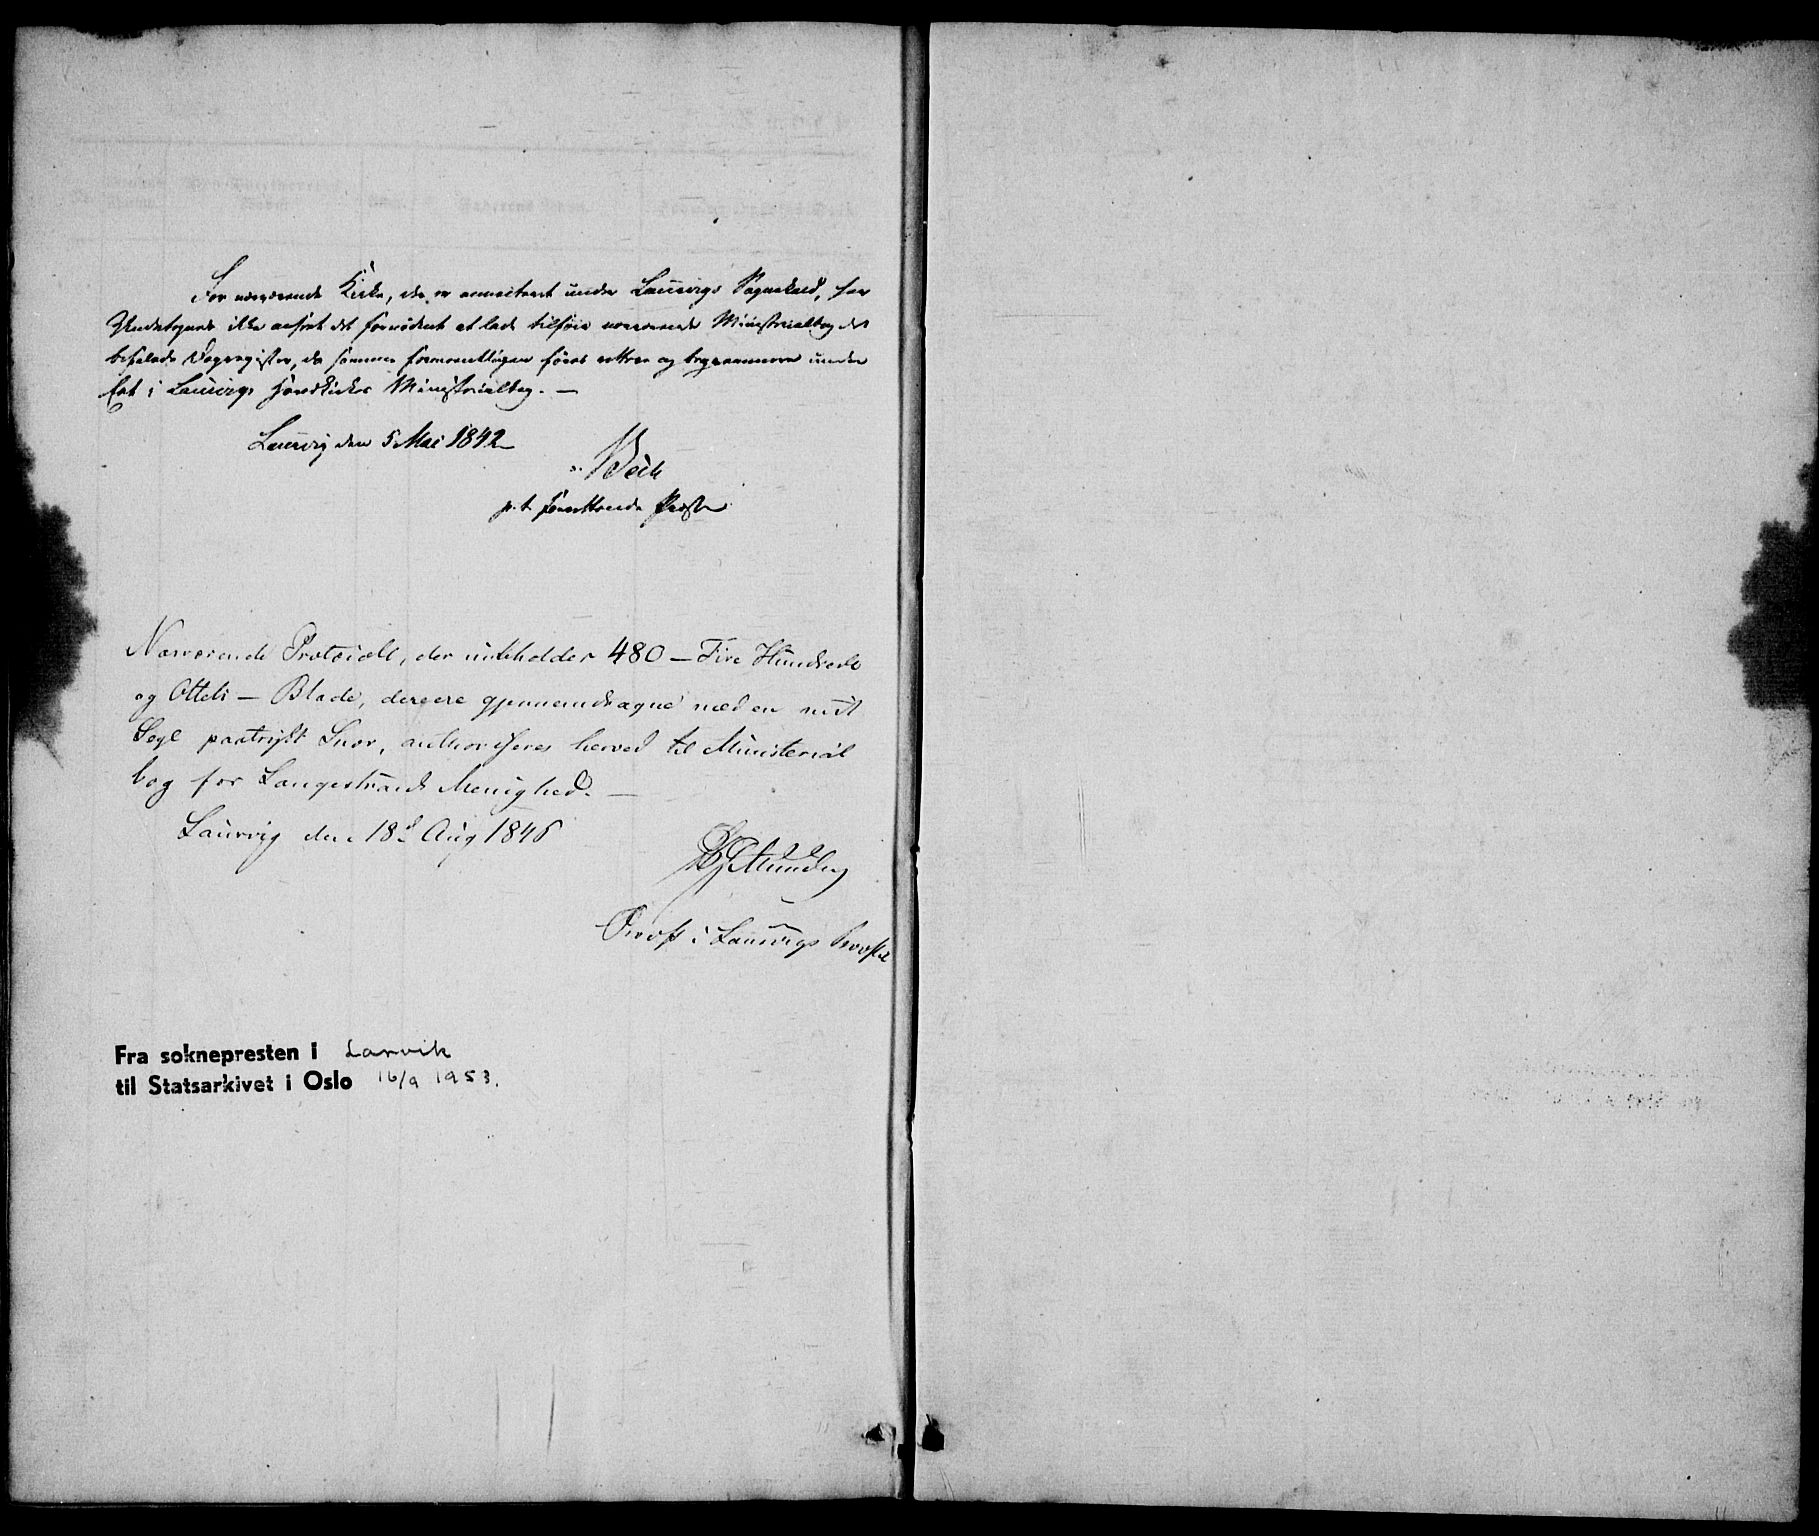 For nærværende Kirke, der er annecteret under Laurvigs Sognekald, har
Undertegnede ikke anseet det fornødent at lade tilføie nærværende Ministerialbog det
befalede Dagregister, da samme formeentligen føres rettere og beqvemmere under
Eet i Laurvigs Hovedkirkes Ministerialbog. —
Laurvig den 5 Mai 1842
p. t. forrettende Præst
Nærværende Protocoll, der indeholder 480 — Fire Hundrede
og Otteti — Blade, der ere gjennemdragne med en mit
Segl paatrykt Snor, authoriseres herved til Ministerial
bog for Langestrands Menighed. —
Laurvig den 18d Aug 1846
Provst i Laurvigs Provstie
Fra soknepresten i Larvik
til Statsarkivet i Oslo 16/9 1953.